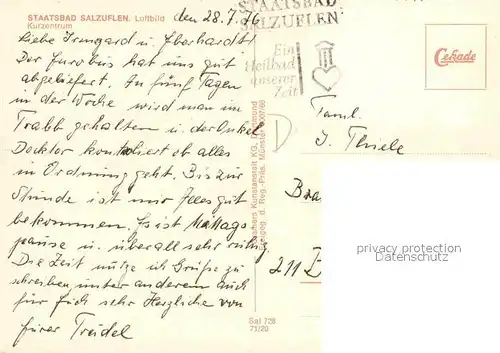 STAATSBAD SALZUFLEN. Luftbild
Kurzentrum
den 28.7.76
Liebe Irmgard u. Eberhardt!
Der Eurobus hat uns gut
abgeliefert. An fünf Tagen
in der Woche wird man im
Trabb gehalten u. der Onkel
Docktor kontroliert ob alles
in Ordnung geht. Bis zur
Stunde ist mir Alles gut
bekommen. Es ist Mittags
pause u. überall sehr ruhig
Die Zeit nutze ich Grüße zu
schreiben unter anderem auch
für Euch sehr Herzliche von
Eurer Treidel
STAATSBAD
SALZUFLEN
Ein
Heilbad
unserer
Zeit
Cekade
Fam.
J. Thiele
Bra
211
Kunstanstalt KG, Dortmund
Freigeg. d. Reg.-Präs. Münster
Sal 728
71/20
privacy protection
Datenschutz